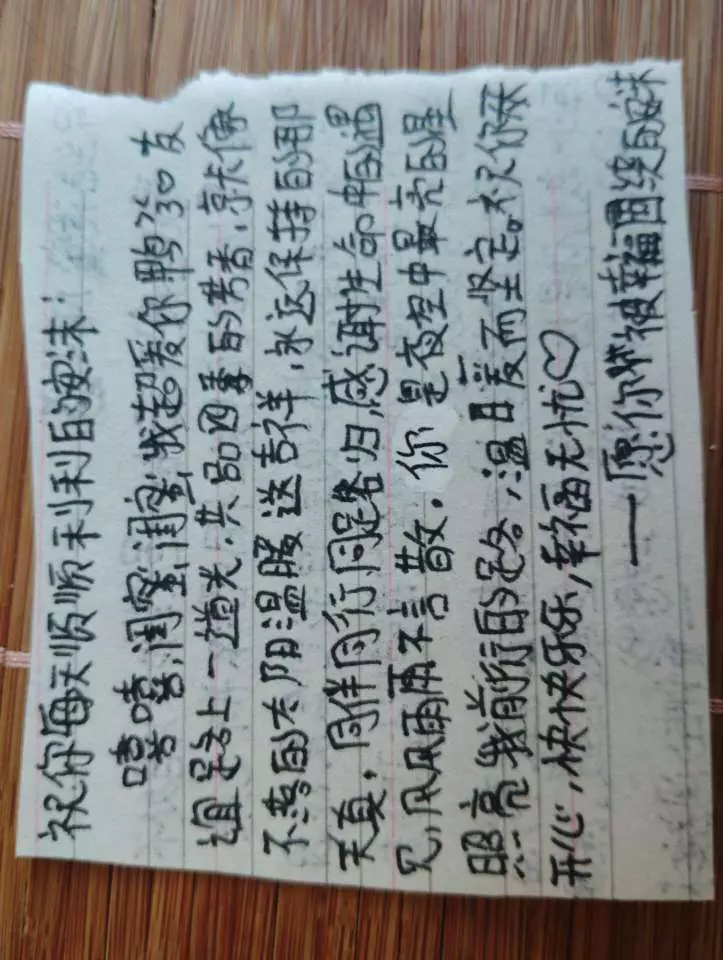 祝你每天顺顺利利的姊妹:
嘻嘻,闺蜜闺蜜,我超爱你鸭,友
谊是路上一道光,共品四季的芳香,就像
不落的太阳温暖送吉祥,永远保持的那
天真,同伴同行同路归,感谢生命中的遇
见,风风雨雨不言散。你是夜空中最亮的星
照亮我前行的路,温日暖而坚定。祝你天
开心,快快乐乐,幸福无忧♡
——愿你被幸福围绕的姊妹